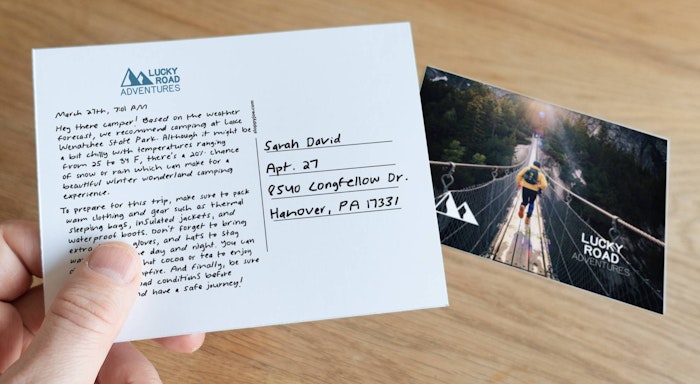 LUCKY
ROAD
ADVENTURES
March 27th, 7:01 AM
Hey there camper! Based on the weather
forecast, we recommend camping at Lake
Wenatchee State Park. Although it might be
a bit chilly with temperatures ranging
from 25 to 34 F, there's a 20% chance
of snow or rain which can make for a
beautiful winter wonderland camping
experience.
To prepare for this trip, make sure to pack
warm clothing and gear such as thermal
sleeping bags, insulated jackets, and
waterproof boots. Don't forget to bring
extra gloves, and hats to stay
day and night. You can
hot cocoa or tea to enjoy
And finally, be sure
conditions before
and have a safe journey!
Sarah David
Apt. 27
8540 Longfellow Dr.
Hanover, PA 17331
LUCKY
ROAD
ADVENTURES